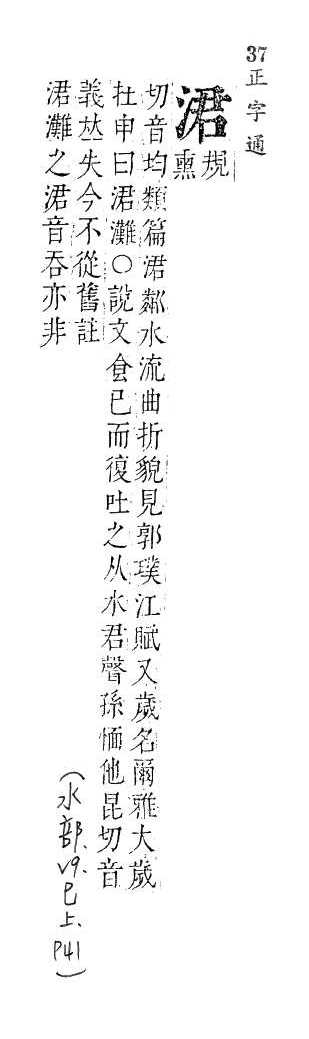 37正字通
涒規熏
切音均類篇涒粼水流曲折貌見郭璞江賦又歲名爾雅大歲
在申曰涒灘○說文食已而復吐之从水君聲孫愐他昆切音
義𠀤失今不從舊註
涒灘之涒音吞亦非
(水部.v9.巳上.P41)